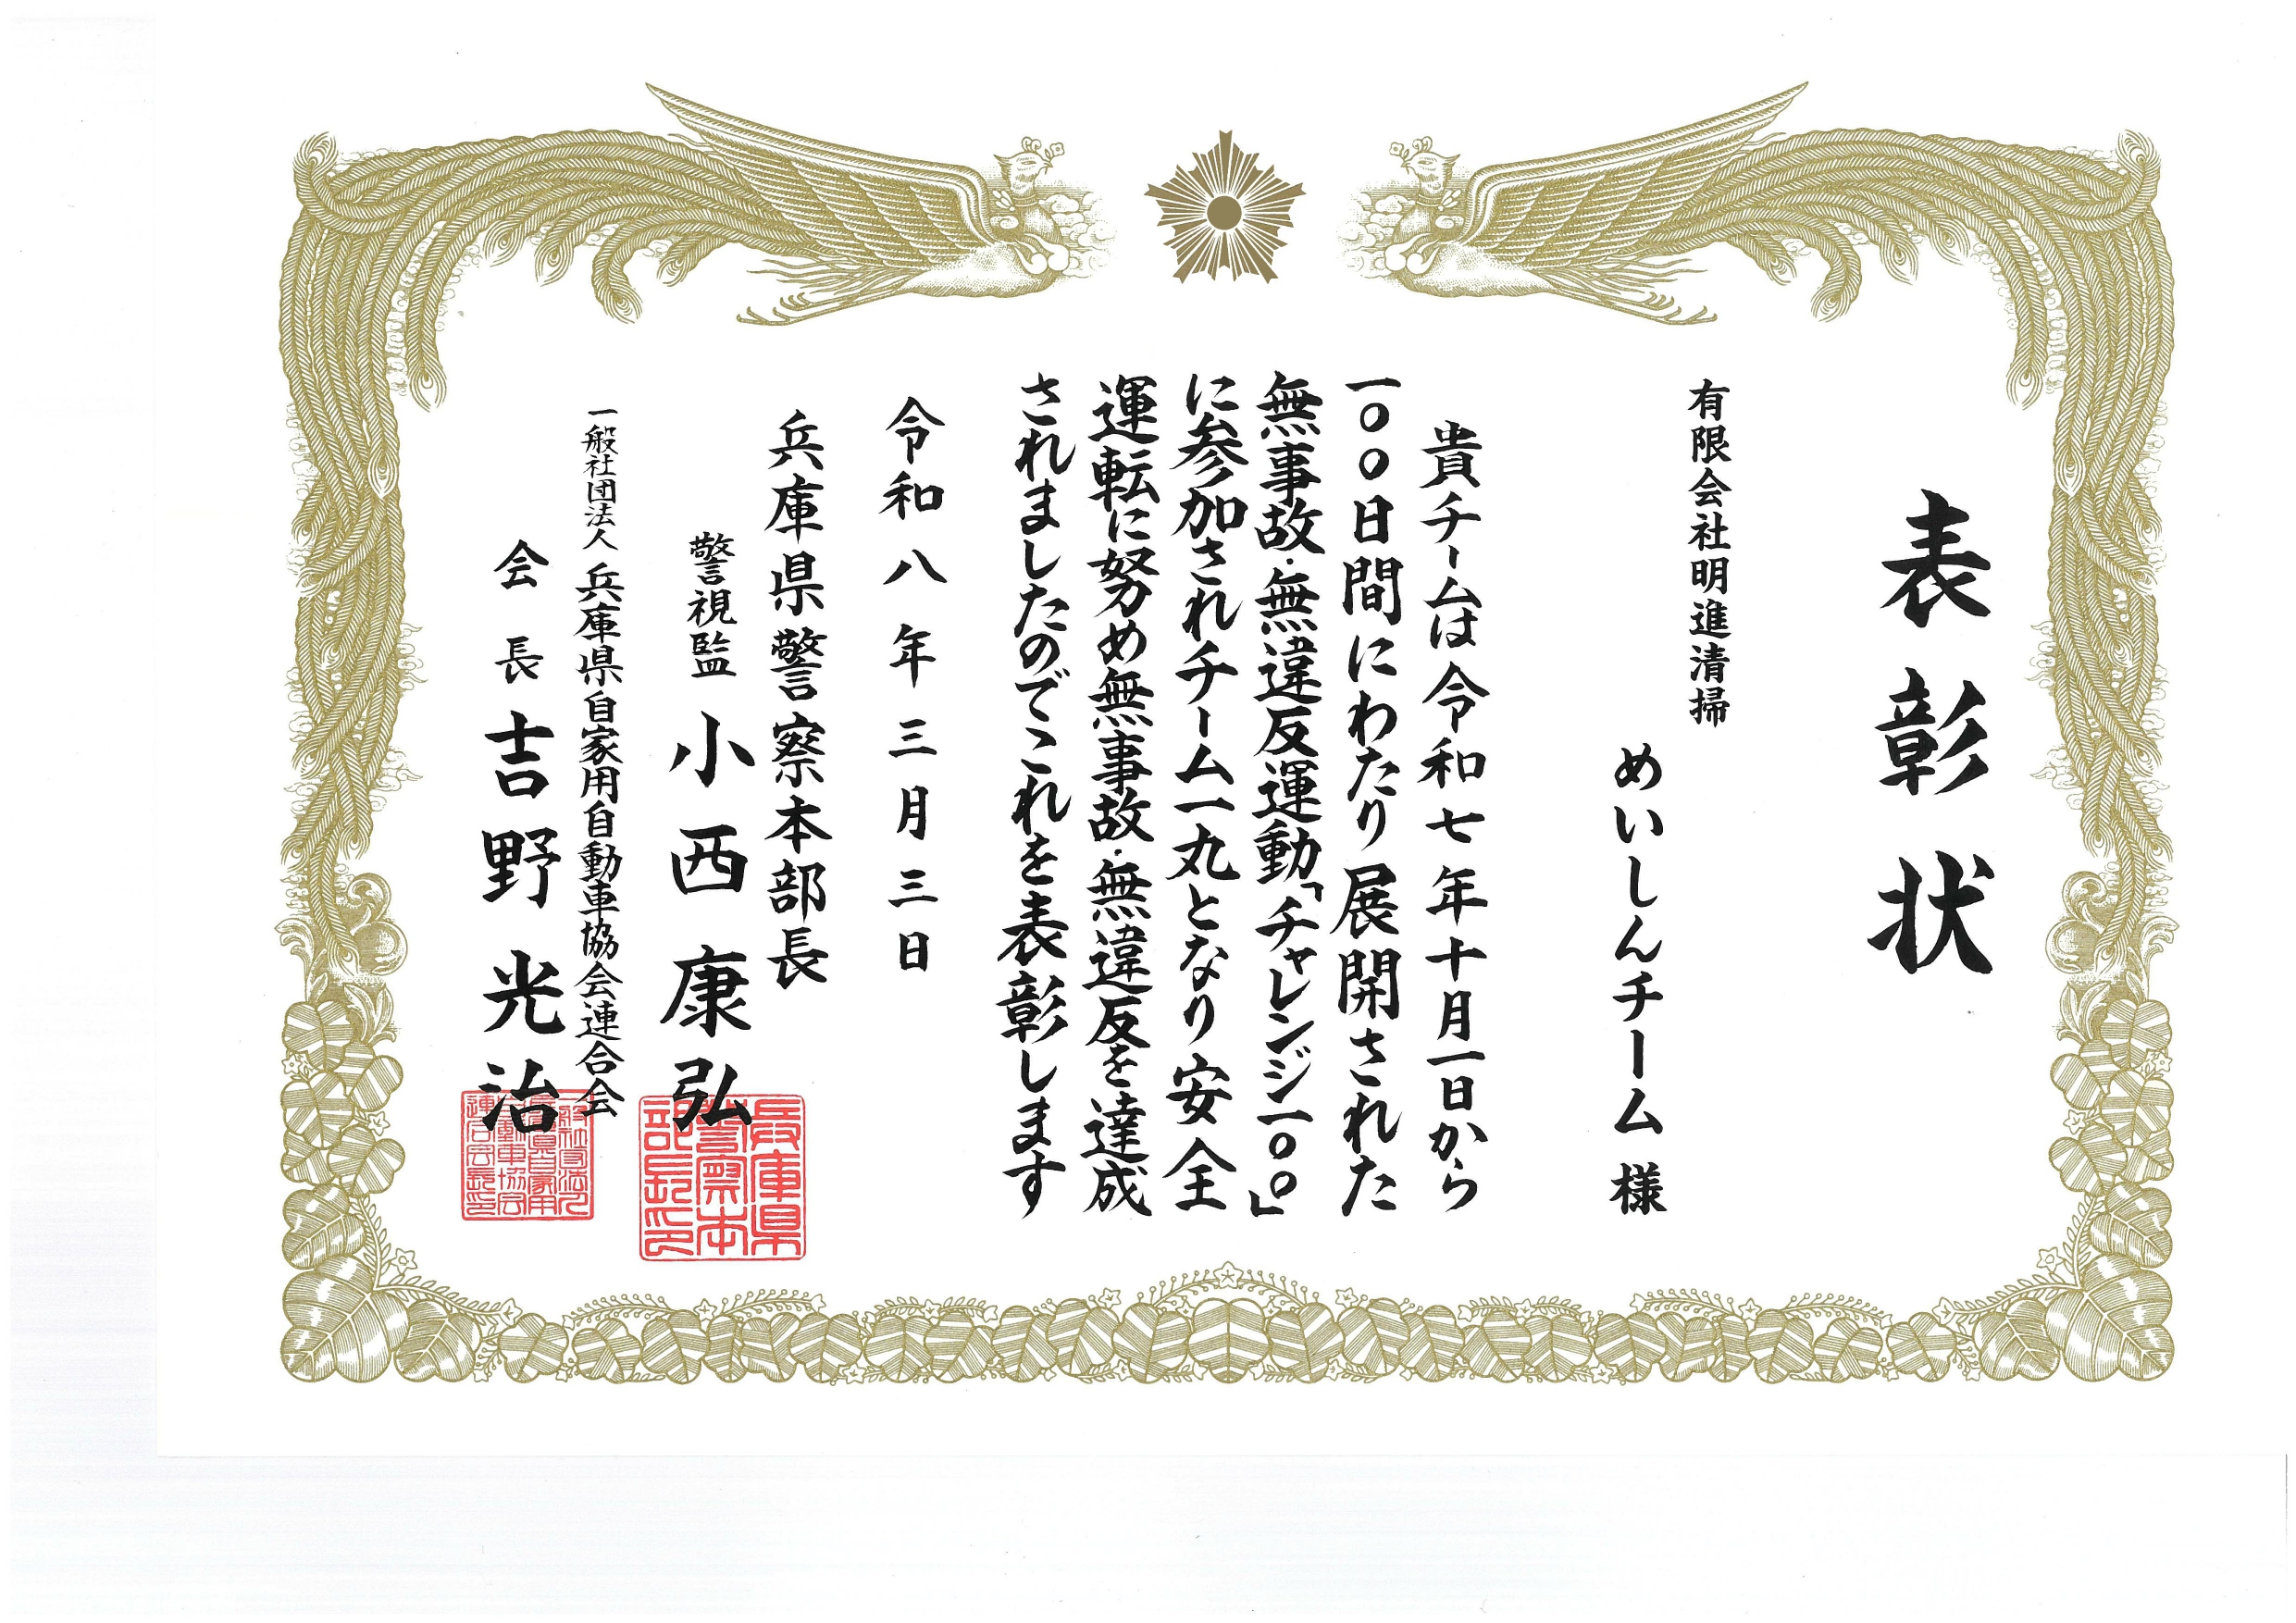 表彰状
有限会社明進清掃
めいしんチーム 様
貴チームは令和七年十月一日から
一〇〇日間にわたり展開された
無事故・無違反運動「チャレンジ一〇〇」
に参加されチーム一丸となり安全
運転に努め無事故・無違反を達成
されましたのでこれを表彰します
令和八年三月三日
兵庫県警察本部長
警視監 小西康弘
一般社団法人 兵庫県自家用自動車協会連合会
会長 吉野光治
兵庫県
警察本
部長印